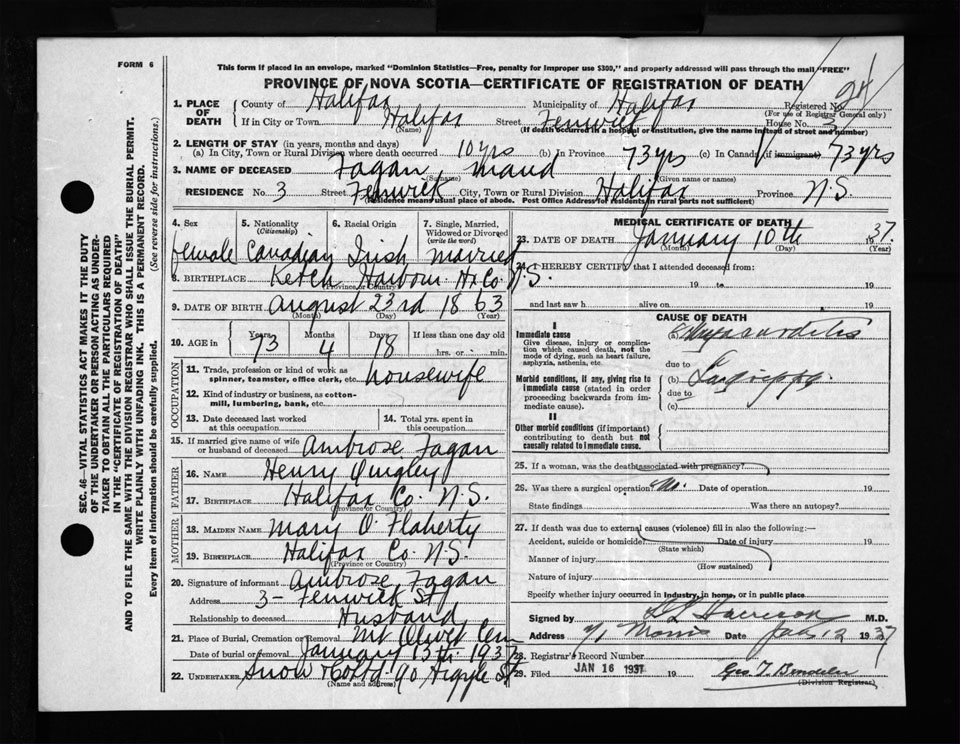 FORM 6
This form if placed in an envelope, marked "Dominion Statistics—Free, penalty for improper use $300," and properly addressed will pass through the mail "FREE"
PROVINCE OF NOVA SCOTIA—CERTIFICATE OF REGISTRATION OF DEATH
1. PLACE OF DEATH
County of Halifax Municipality of Halifax Registered No. 
(For use of Registrar General only)
If in City or Town Halifax Street Fenwick House No. 3
(Name) (If death occurred in a hospital or institution, give the name instead of street and number)
2. LENGTH OF STAY (in years, months and days)
(a) In City, Town or Rural Division where death occurred 10 yrs (b) In Province 73 yrs (c) In Canada (if immigrant) 73 yrs
3. NAME OF DECEASED Fagan Maud
(Surname) (Given name or names)
RESIDENCE No. 3 Street Fenwick City, Town or Rural Division Halifax Province N.S.
(Residence means usual place of abode. Post Office Address for residents in rural parts not sufficient)
4. Sex 5. Nationality 6. Racial Origin 7. Single, Married, Widowed or Divorced
(Citizenship) (write the word)
female Canadian Irish married
8. BIRTHPLACE Ketch Harbour Hx Co. N.S.
(Province or Country)
9. DATE OF BIRTH August 23rd 1863
(Month) (Day) (Year)
10. AGE in Years Months Days If less than one day old
73 4 18 hrs. or min.
OCCUPATION
11. Trade, profession or kind of work as spinner, teamster, office clerk, etc. housewife
12. Kind of industry or business, as cotton-mill, lumbering, bank, etc.
13. Date deceased last worked at this occupation
14. Total yrs. spent in this occupation
15. If married give name of wife or husband of deceased Ambrose Fagan
FATHER
16. NAME Henry Quigley
17. BIRTHPLACE Halifax Co. N.S.
(Province or Country)
MOTHER
18. MAIDEN NAME Mary O'Flaherty
19. BIRTHPLACE Halifax Co. N.S.
(Province or Country)
20. Signature of informant Ambrose Fagan
Address 3 - Fenwick St
Relationship to deceased Husband
21. Place of Burial, Cremation or Removal Mt Olivet Cem
Date of burial or removal January 13th 1937
22. UNDERTAKER Snow & Co Ltd 90 Argyle St
(Name and address)
MEDICAL CERTIFICATE OF DEATH
23. DATE OF DEATH January 10th 1937.
(Month) (Day) (Year)
24. I HEREBY CERTIFY that I attended deceased from:
19 to 19
and last saw h alive on 19
CAUSE OF DEATH
I
Immediate cause
Give disease, injury or complication which caused death, not the mode of dying, such as heart failure, asphyxia, asthenia, etc.
(a) Myocarditis
due to
Morbid conditions, if any, giving rise to immediate cause (stated in order proceeding backwards from immediate cause).
(b) La grippe
due to
(c)
II
Other morbid conditions (if important) contributing to death but not causally related to immediate cause.
25. If a woman, was the death associated with pregnancy?
26. Was there a surgical operation? No. Date of operation 19
State findings Was there an autopsy?
27. If death was due to external causes (violence) fill in also the following:—
Accident, suicide or homicide? Date of injury 19
(State which)
Manner of injury
(How sustained)
Nature of injury
Specify whether injury occurred in industry, in home, or in public place
Signed by Harrison M.D.
Address Morris Date Jan 12 1937
28. Registrar's Record Number
29. Filed JAN 16 1937 19 Geo. T.
(Division Registrar)
SEC. 46—VITAL STATISTICS ACT MAKES IT THE DUTY
OF THE UNDERTAKER OR PERSON ACTING AS UNDERTAKER TO OBTAIN ALL THE PARTICULARS REQUIRED
IN THE "CERTIFICATE OF REGISTRATION OF DEATH"
AND TO FILE THE SAME WITH THE DIVISION REGISTRAR WHO SHALL ISSUE THE BURIAL PERMIT.
WRITE PLAINLY WITH UNFADING INK. THIS IS A PERMANENT RECORD.
Every item of information should be carefully supplied. (See reverse side for instructions.)